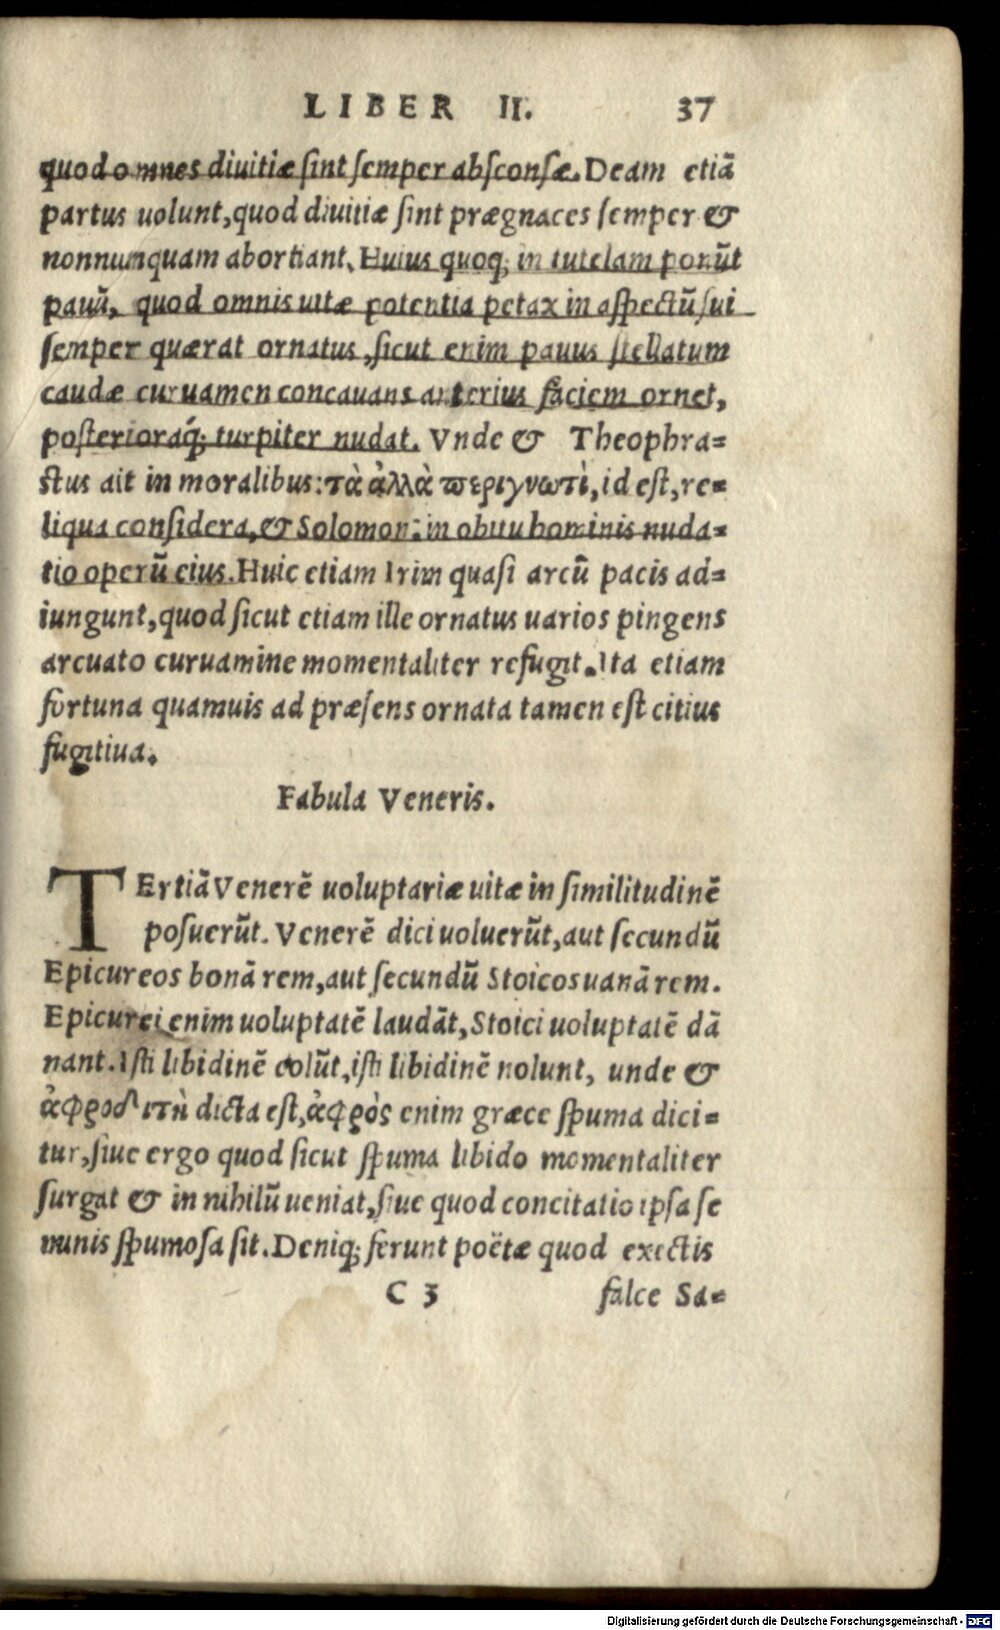 LIBER II. 37
quod omnes diuitiæ sint semper absconsæ. Deam etiā
partus uolunt, quod diuitiæ sint prægnaces semper &
nonnunquam abortiant. Huius quoq; in tutelam ponūt
pauū, quod omnis uitæ potentia petax in aspectū sui
semper quærat ornatus, sicut enim pauus stellatum
caudæ curuamen concauans anterius faciem ornet,
posterioraq́; turpiter nudat. Vnde & Theophra=
stus ait in moralibus: τὰ ἀλλὰ περιγνωτὶ, id est, re=
liqua considera, & Solomon: in obitu hominis nuda=
tio operū eius. Huic etiam Irim quasi arcū pacis ad=
iungunt, quod sicut etiam ille ornatus uarios pingens
arcuato curuamine momentaliter refugit. Ita etiam
fortuna quamuis ad præsens ornata tamen est citius
fugitiua.
Fabula Veneris.
TErtiā Venerē uoluptariæ uitæ in similitudinē
posuerūt. Venerē dici uoluerūt, aut secundū
Epicureos bonā rem, aut secundū Stoicos uanā rem.
Epicurei enim uoluptatē laudāt, Stoici uoluptatē dā
nant. Isti libidinē colūt, isti libidinē nolunt, unde &
ἀφροδιτὴ dicta est, ἀφρὸς enim græce spuma dici=
tur, siue ergo quod sicut spuma libido momentaliter
surgat & in nihilū ueniat, siue quod concitatio ipsa se
minis spumosa sit. Deniq; ferunt poëtæ quod exectis
C 3 falce Sa=
Digitalisierung gefördert durch die Deutsche Forschungsgemeinschaft - DFG